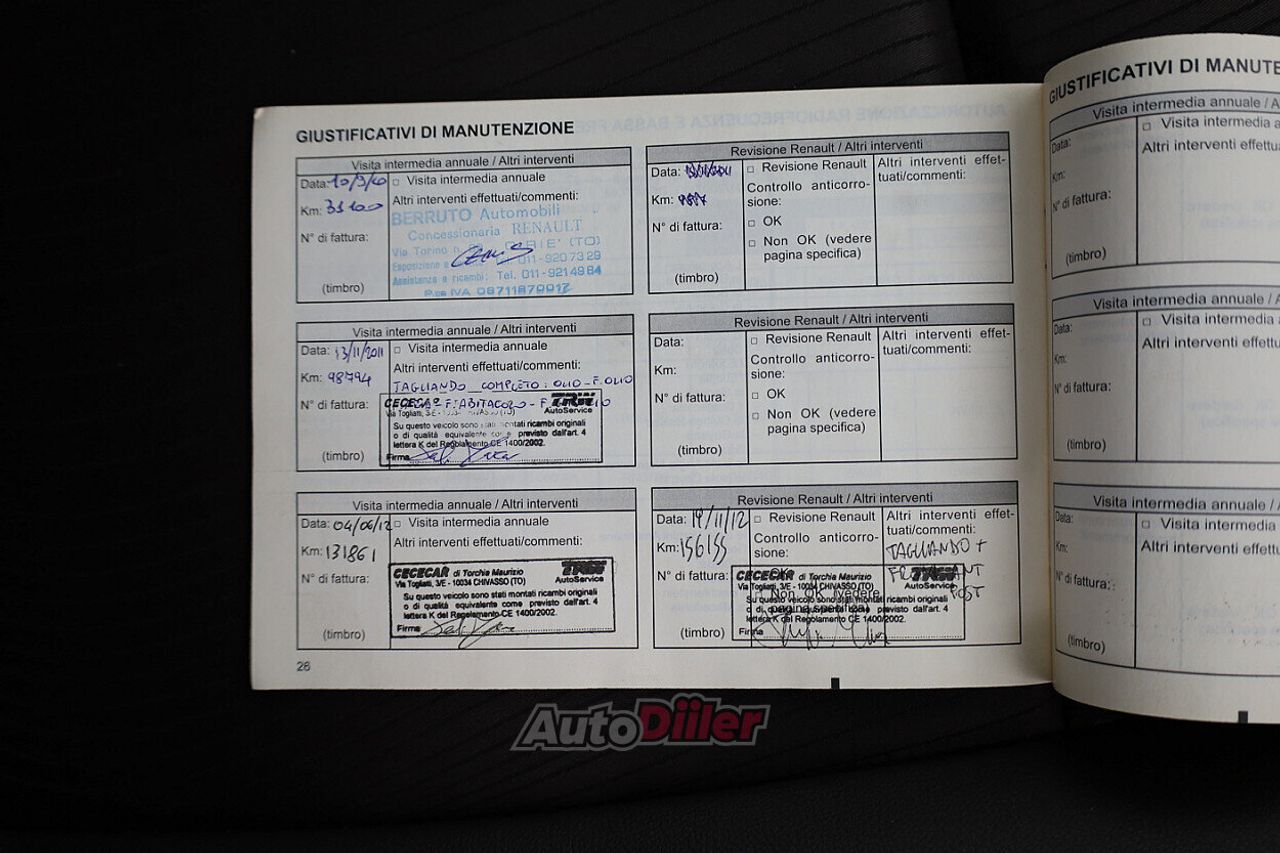 GIUSTIFICATIVI DI MANUTENZIONE
Visita intermedia annuale / Altri interventi
Data: 10/9/10
□ Visita intermedia annuale
Km: 35100
Altri interventi effettuati/commenti:
BERRUTO Automobili
Concessionaria RENAULT
Via Torino
(TO)
011-9207329
Assistenza e ricambi: Tel. 011-9214984
P.ta IVA 08711870012
N° di fattura:
(timbro)
Revisione Renault / Altri interventi
Data: 13/11/2011
□ Revisione Renault
Altri interventi effet-
tuati/commenti:
Km:
Controllo anticorro-
sione:
N° di fattura:
□ OK
□ Non OK (vedere
pagina specifica)
(timbro)
Visita intermedia annuale / Altri interventi
Data: 13/11/2011
□ Visita intermedia annuale
Km: 98794
Altri interventi effettuati/commenti:
TAGLIANDO COMPLETO: OLIO - F. OLIO
F. ABITACOLO - F.
N° di fattura:
CECECAR
TRW
AutoService
Via Togliatti, 3/E - 10034 CHIVASSO (TO)
Su questo veicolo sono stati montati ricambi originali
o di qualità equivalente come previsto dall'art. 4
lettera K del Regolamento CE 1400/2002.
Firma
(timbro)
Revisione Renault / Altri interventi
Data:
□ Revisione Renault
Altri interventi effet-
tuati/commenti:
Km:
Controllo anticorro-
sione:
N° di fattura:
□ OK
□ Non OK (vedere
pagina specifica)
(timbro)
Visita intermedia annuale / Altri interventi
Data: 04/06/12
□ Visita intermedia annuale
Km: 131861
Altri interventi effettuati/commenti:
N° di fattura:
CECECAR di Torchia Maurizio
TRW
AutoService
Via Togliatti, 3/E - 10034 CHIVASSO (TO)
Su questo veicolo sono stati montati ricambi originali
o di qualità equivalente come previsto dall'art. 4
lettera K del Regolamento CE 1400/2002.
Firma
(timbro)
Revisione Renault / Altri interventi
Data: 19/11/12
□ Revisione Renault
Altri interventi effet-
tuati/commenti:
Km: 156155
Controllo anticorro-
sione:
TAGLIANDO +
POST
N° di fattura:
□ OK
□ Non OK (vedere
pagina specifica)
CECECAR di Torchia Maurizio
TRW
AutoService
Via Togliatti, 3/E - 10034 CHIVASSO (TO)
Su questo veicolo sono stati montati ricambi originali
o di qualità equivalente come previsto dall'art. 4
lettera K del Regolamento CE 1400/2002.
Firma
(timbro)
26
GIUSTIFICATIVI DI MANUTE
Visita intermedia annuale / A
Data:
□ Visita intermedia a
Km:
Altri interventi effettu
N° di fattura:
(timbro)
Visita intermedia annuale /
Data:
□ Visita intermedia
Km:
Altri interventi effettu
N° di fattura:
(timbro)
Visita intermedia annuale /
Data:
□ Visita intermedia
Km:
Altri interventi effettu
N° di fattura:
(timbro)
AutoDiiler